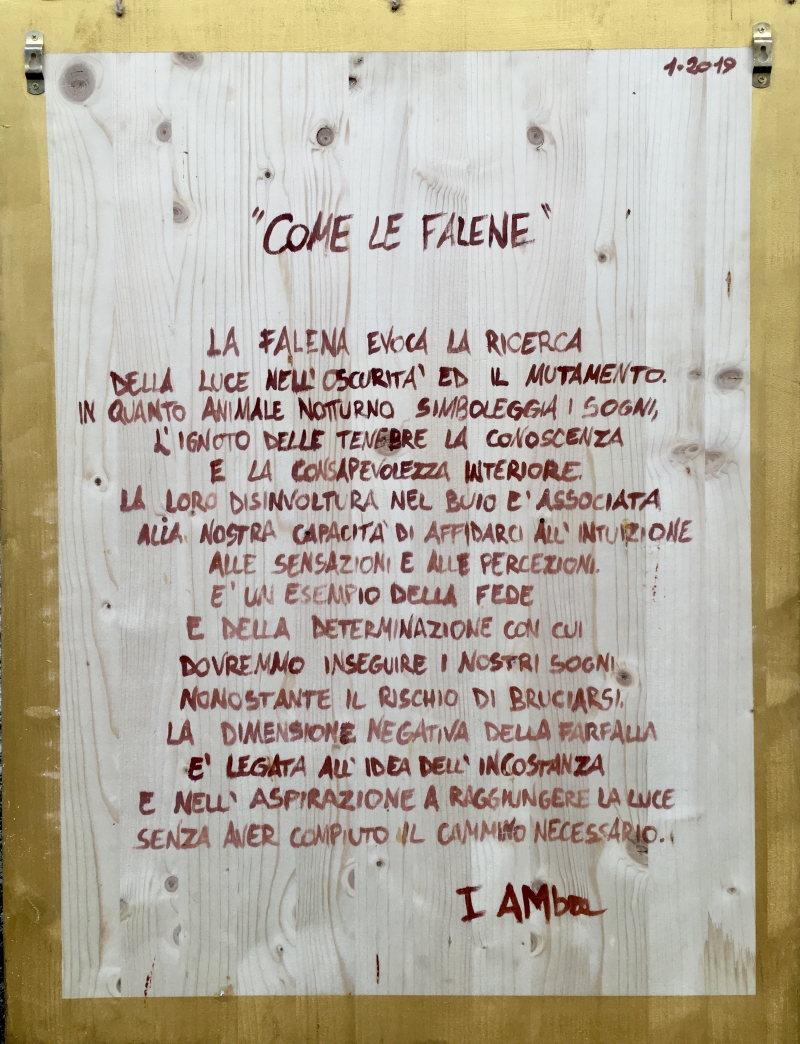 1•2019
"COME LE FALENE"
LA FALENA EVOCA LA RICERCA
DELLA LUCE NELL'OSCURITA' ED IL MUTAMENTO.
IN QUANTO ANIMALE NOTTURNO SIMBOLEGGIA I SOGNI,
L'IGNOTO DELLE TENEBRE LA CONOSCENZA
E LA CONSAPEVOLEZZA INTERIORE.
LA LORO DISINVOLTURA NEL BUIO E' ASSOCIATA
ALLA NOSTRA CAPACITA' DI AFFIDARCI ALL'INTUIZIONE
ALLE SENSAZIONI E ALLE PERCEZIONI.
E' UN ESEMPIO DELLA FEDE
E DELLA DETERMINAZIONE CON CUI
DOVREMMO INSEGUIRE I NOSTRI SOGNI
NONOSTANTE IL RISCHIO DI BRUCIARSI.
LA DIMENSIONE NEGATIVA DELLA FARFALLA
E' LEGATA ALL'IDEA DELL'INCOSTANZA
E NELL'ASPIRAZIONE A RAGGIUNGERE LA LUCE
SENZA AVER COMPIUTO IL CAMMINO NECESSARIO.
I AMbra